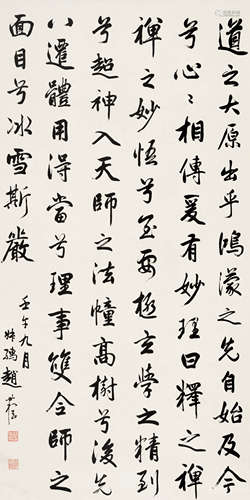 道之大原出乎鴻濛之先自始及今
兮心心相傳爰有妙理曰釋之禪
禪之妙悟兮至要極玄學之精到
兮超神入天師之法幢高樹兮後先
八遷體用得當兮理事雙全師之
面目兮冰雪斯嚴
壬午九月
趙